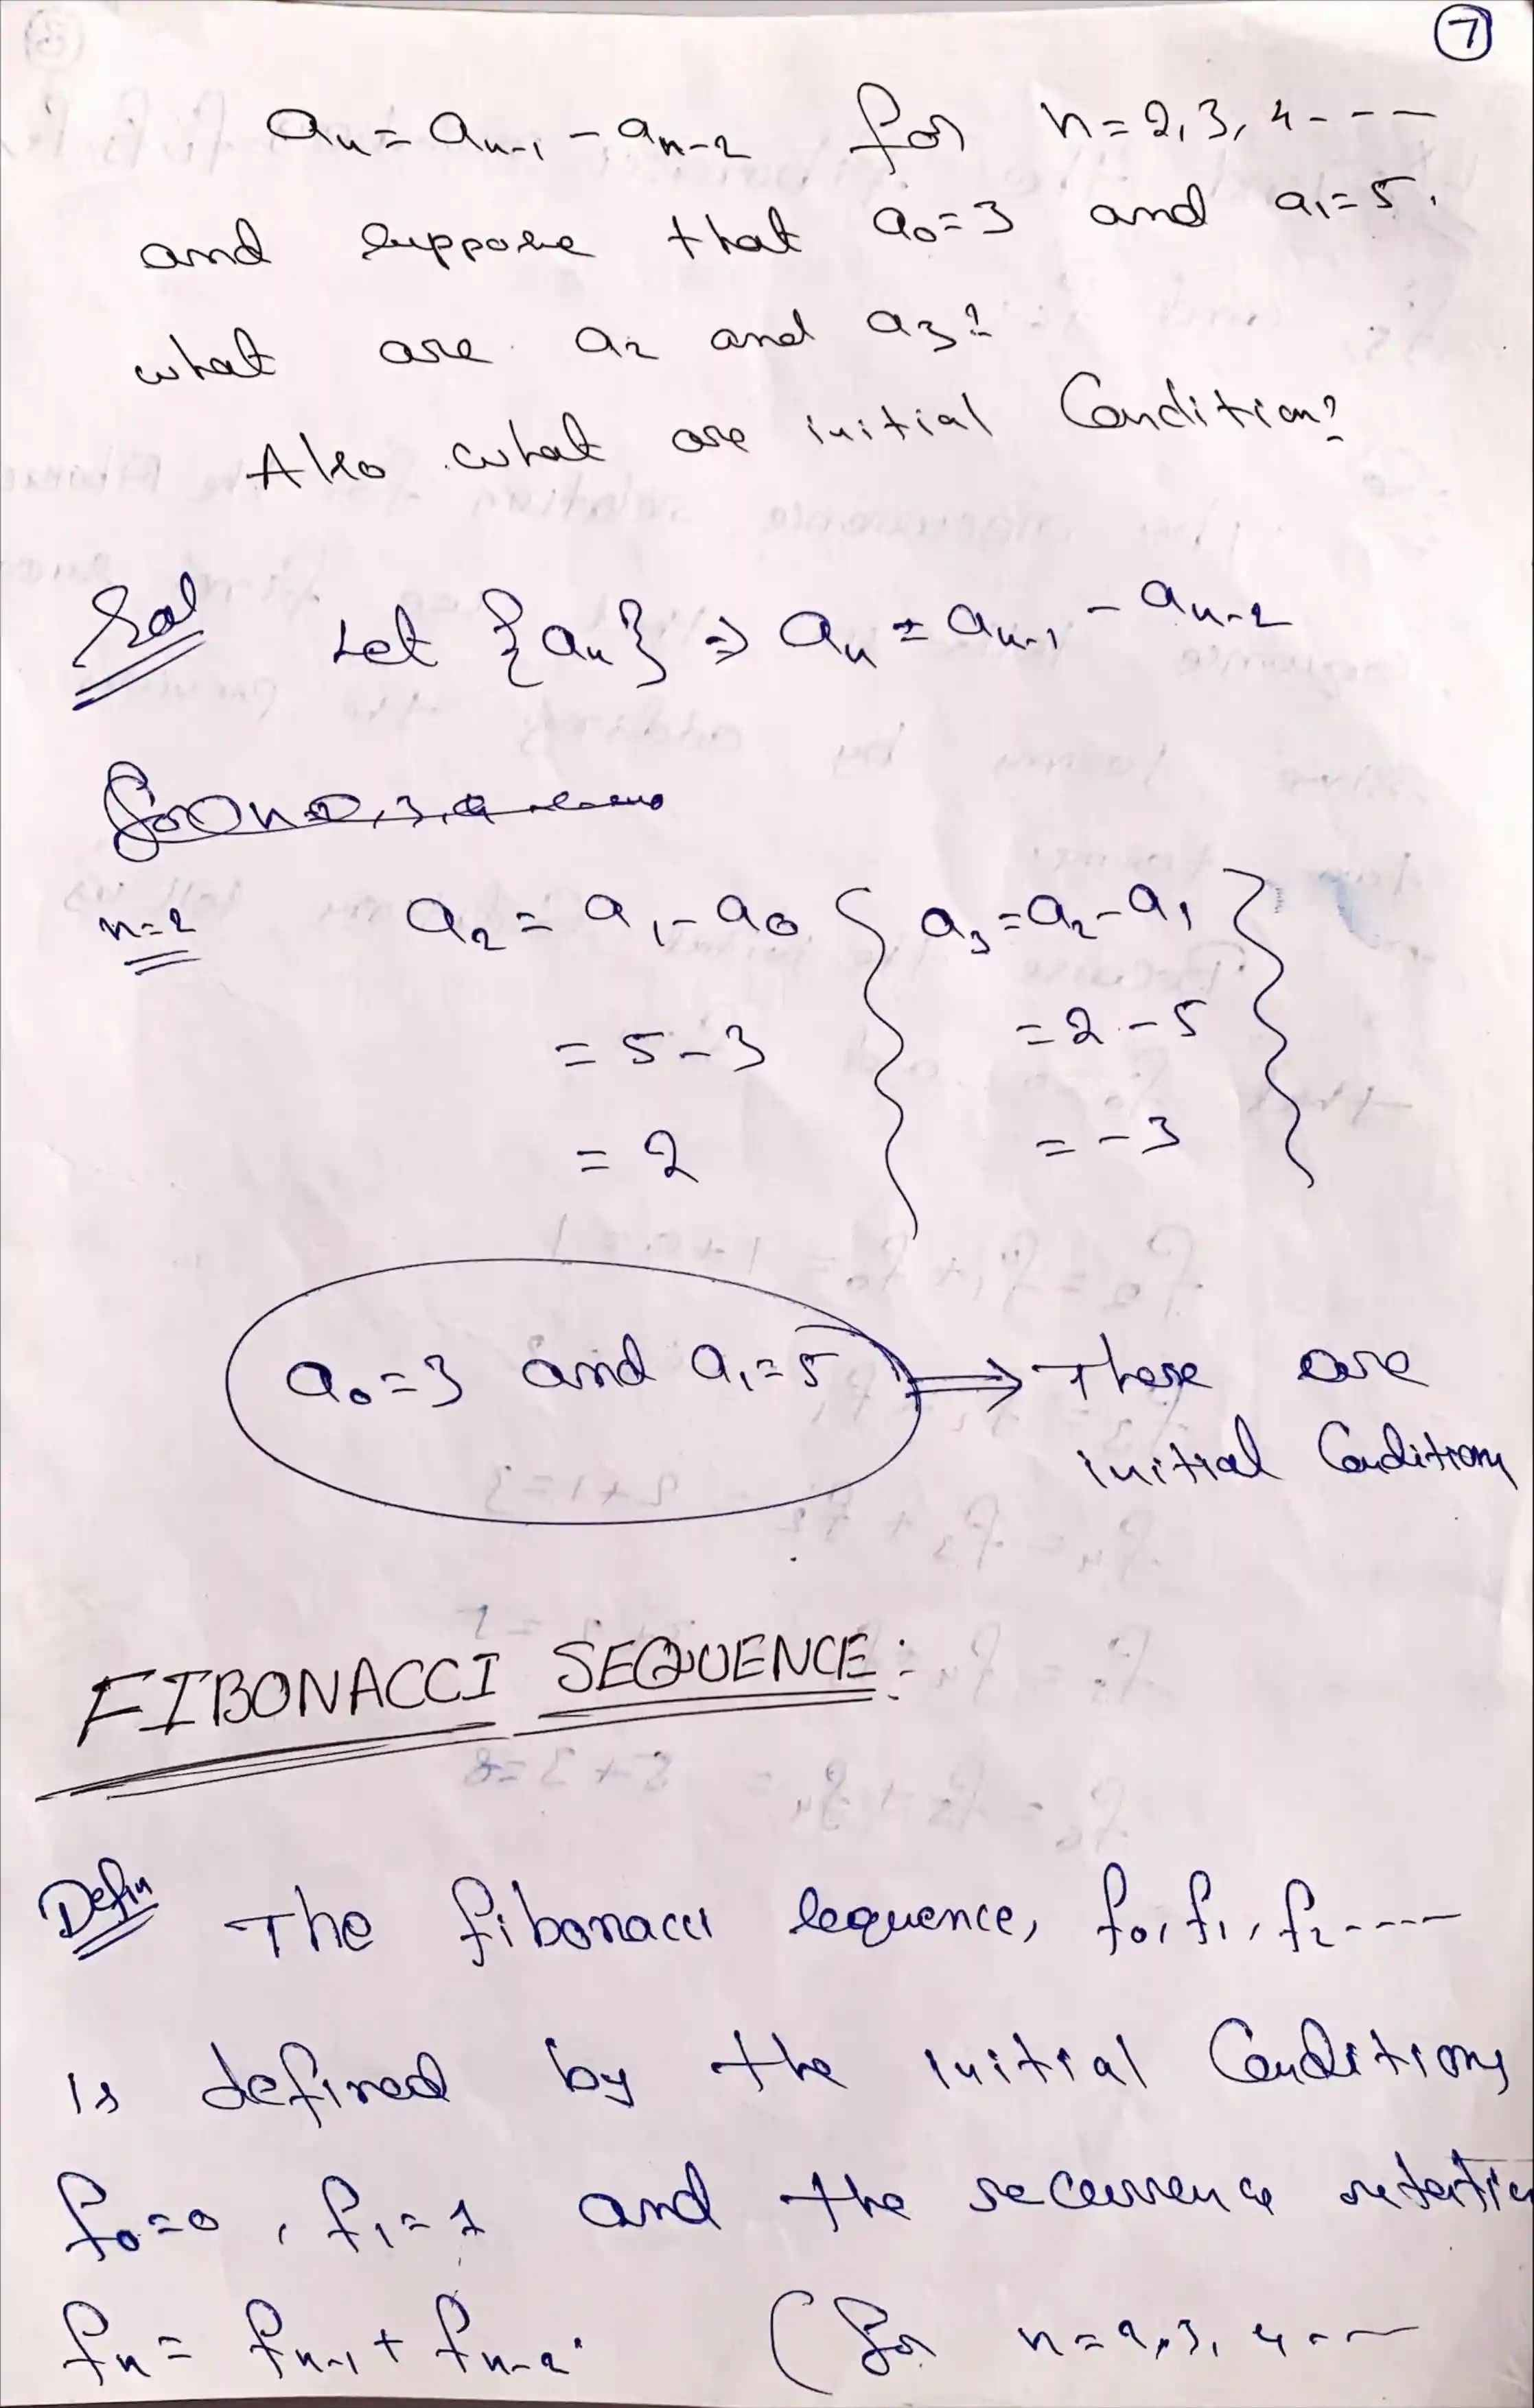 7
an = an-1 - an-2 for n=2,3,4----
and suppose that a0=3 and a1=5.
what are a2 and a3?
Also what are initial Condition?
Sol Let {an} ⇒ an = an-1 - an-2
n=2 a2 = a1 - a0 { a3 = a2 - a1 }
= 5-3 = 2-5
= 2 = -3
a0=3 and a1=5 ⇒ These are
initial Conditions
FIBONACCI SEQUENCE:
Defin The fibonacci sequence, f0, f1, f2----
is defined by the initial Conditions
f0=0, f1=1 and the recurrence
fn = fn-1 + fn-2. (for n=2,3,4---